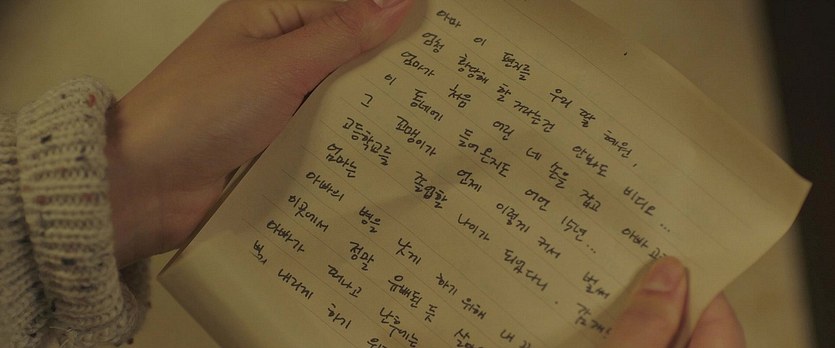 아마 이 편지를 우리 딸 혜원,
엄청 황당해 할 거라는건 안봐도 비디오...
엄마가 처음 어린 네 손을 잡고 아빠
이 동네에 들어온지도 어언 15년...
그 꼬맹이가 언제 이렇게 커서 벌써
고등학교를 졸업할 나이가 되었다니.
엄마는
아빠의 병을 낫게 하기 위해 내
이곳에서 정말 유배된 듯
아빠가 떠나고 난 후에는
내리게 하기